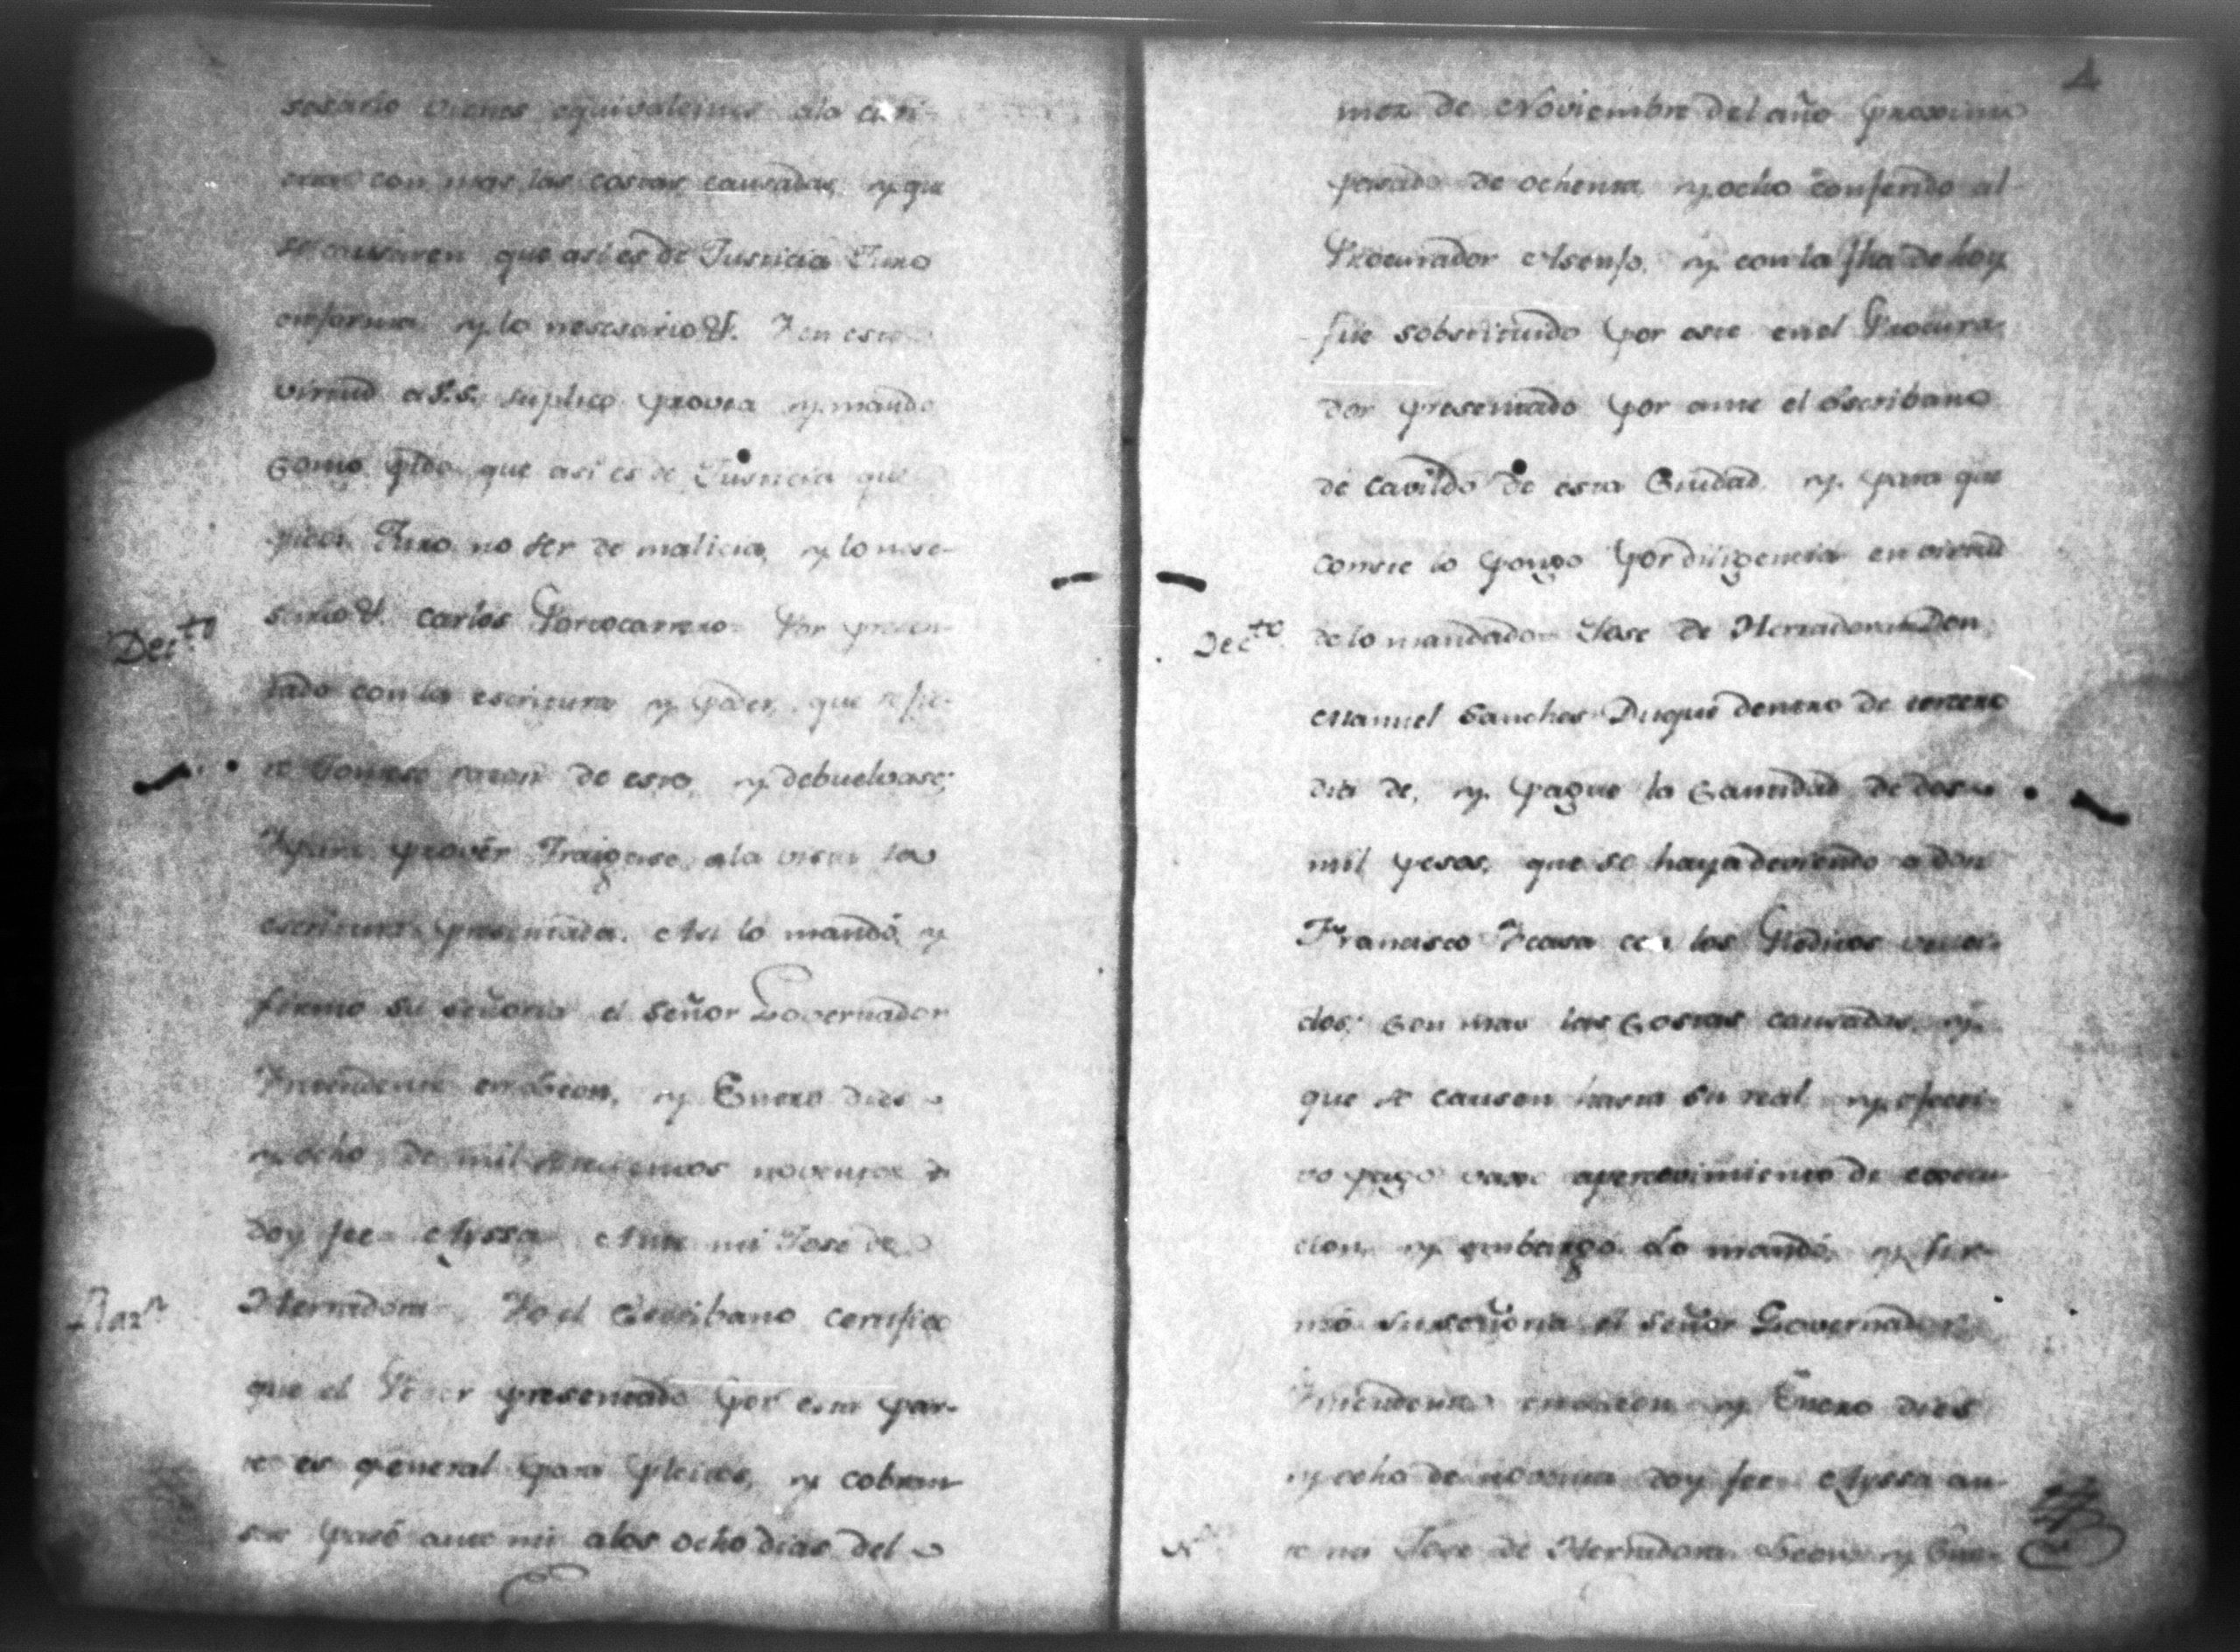 sesario vienes equivalentes ala canti-
con mas las costas causadas, y que
se causaren que asi es de Justicia Juro
enforma y lo nesesario &. Y en esta
virtud a S.S. suplico provea y mande
como pido que asi es de Justicia que
pido. Juro no ser de malicia, y lo nese-
Decto
sario &. Carlos Portocarrero Por presen-
tado con la escritura y poder, que refie-
re tomese razon de esto, y debuelvase;
Y para provér Traigase ala vista la
escritura presentada. Asi lo mandó, y
firmó su señoria el señor Governador
Yntendente en Leon, y Enero dies
y ocho de mil setecientos noventa
doy fee Ayssa Ante mi Jose de
Razn
Herradora Yo el Escribano certifico
que el Poder presentado por esta par-
te es general para pleitos, y cobran
sas pasó ante mi alos ocho dias del
mez de Noviembre del año proximo
pasado de ochenta y ocho conferido al
Procurador Asenso, y con la fha de hoy
fue sobstituido por este en el Procura-
dor presentado por ante el Escribano
de Cavildo de esta Ciudad y para que
conste lo pongo por diligencia en virtud
Decto
de lo mandado Jose de Herradora Don
Manuel Sanches Duque dentro de tercero
dia de, y pague la Cantidad de dos
mil pesos, que se haya deviendo a don
Francisco Ycasa con los Reditos venci-
dos; con mas las Costas causadas, y
que se causen hasta su real y efecti-
vo pago vaxo apercevimiento de execu
cion, y embargo. Lo mandó, y fir-
mó su señoria el señor Governador
Yntendente en Leon y Enero dies
y ocho de noventa doy fee Ayssa an-
te mi Jose de Herradora Leon y Ene-